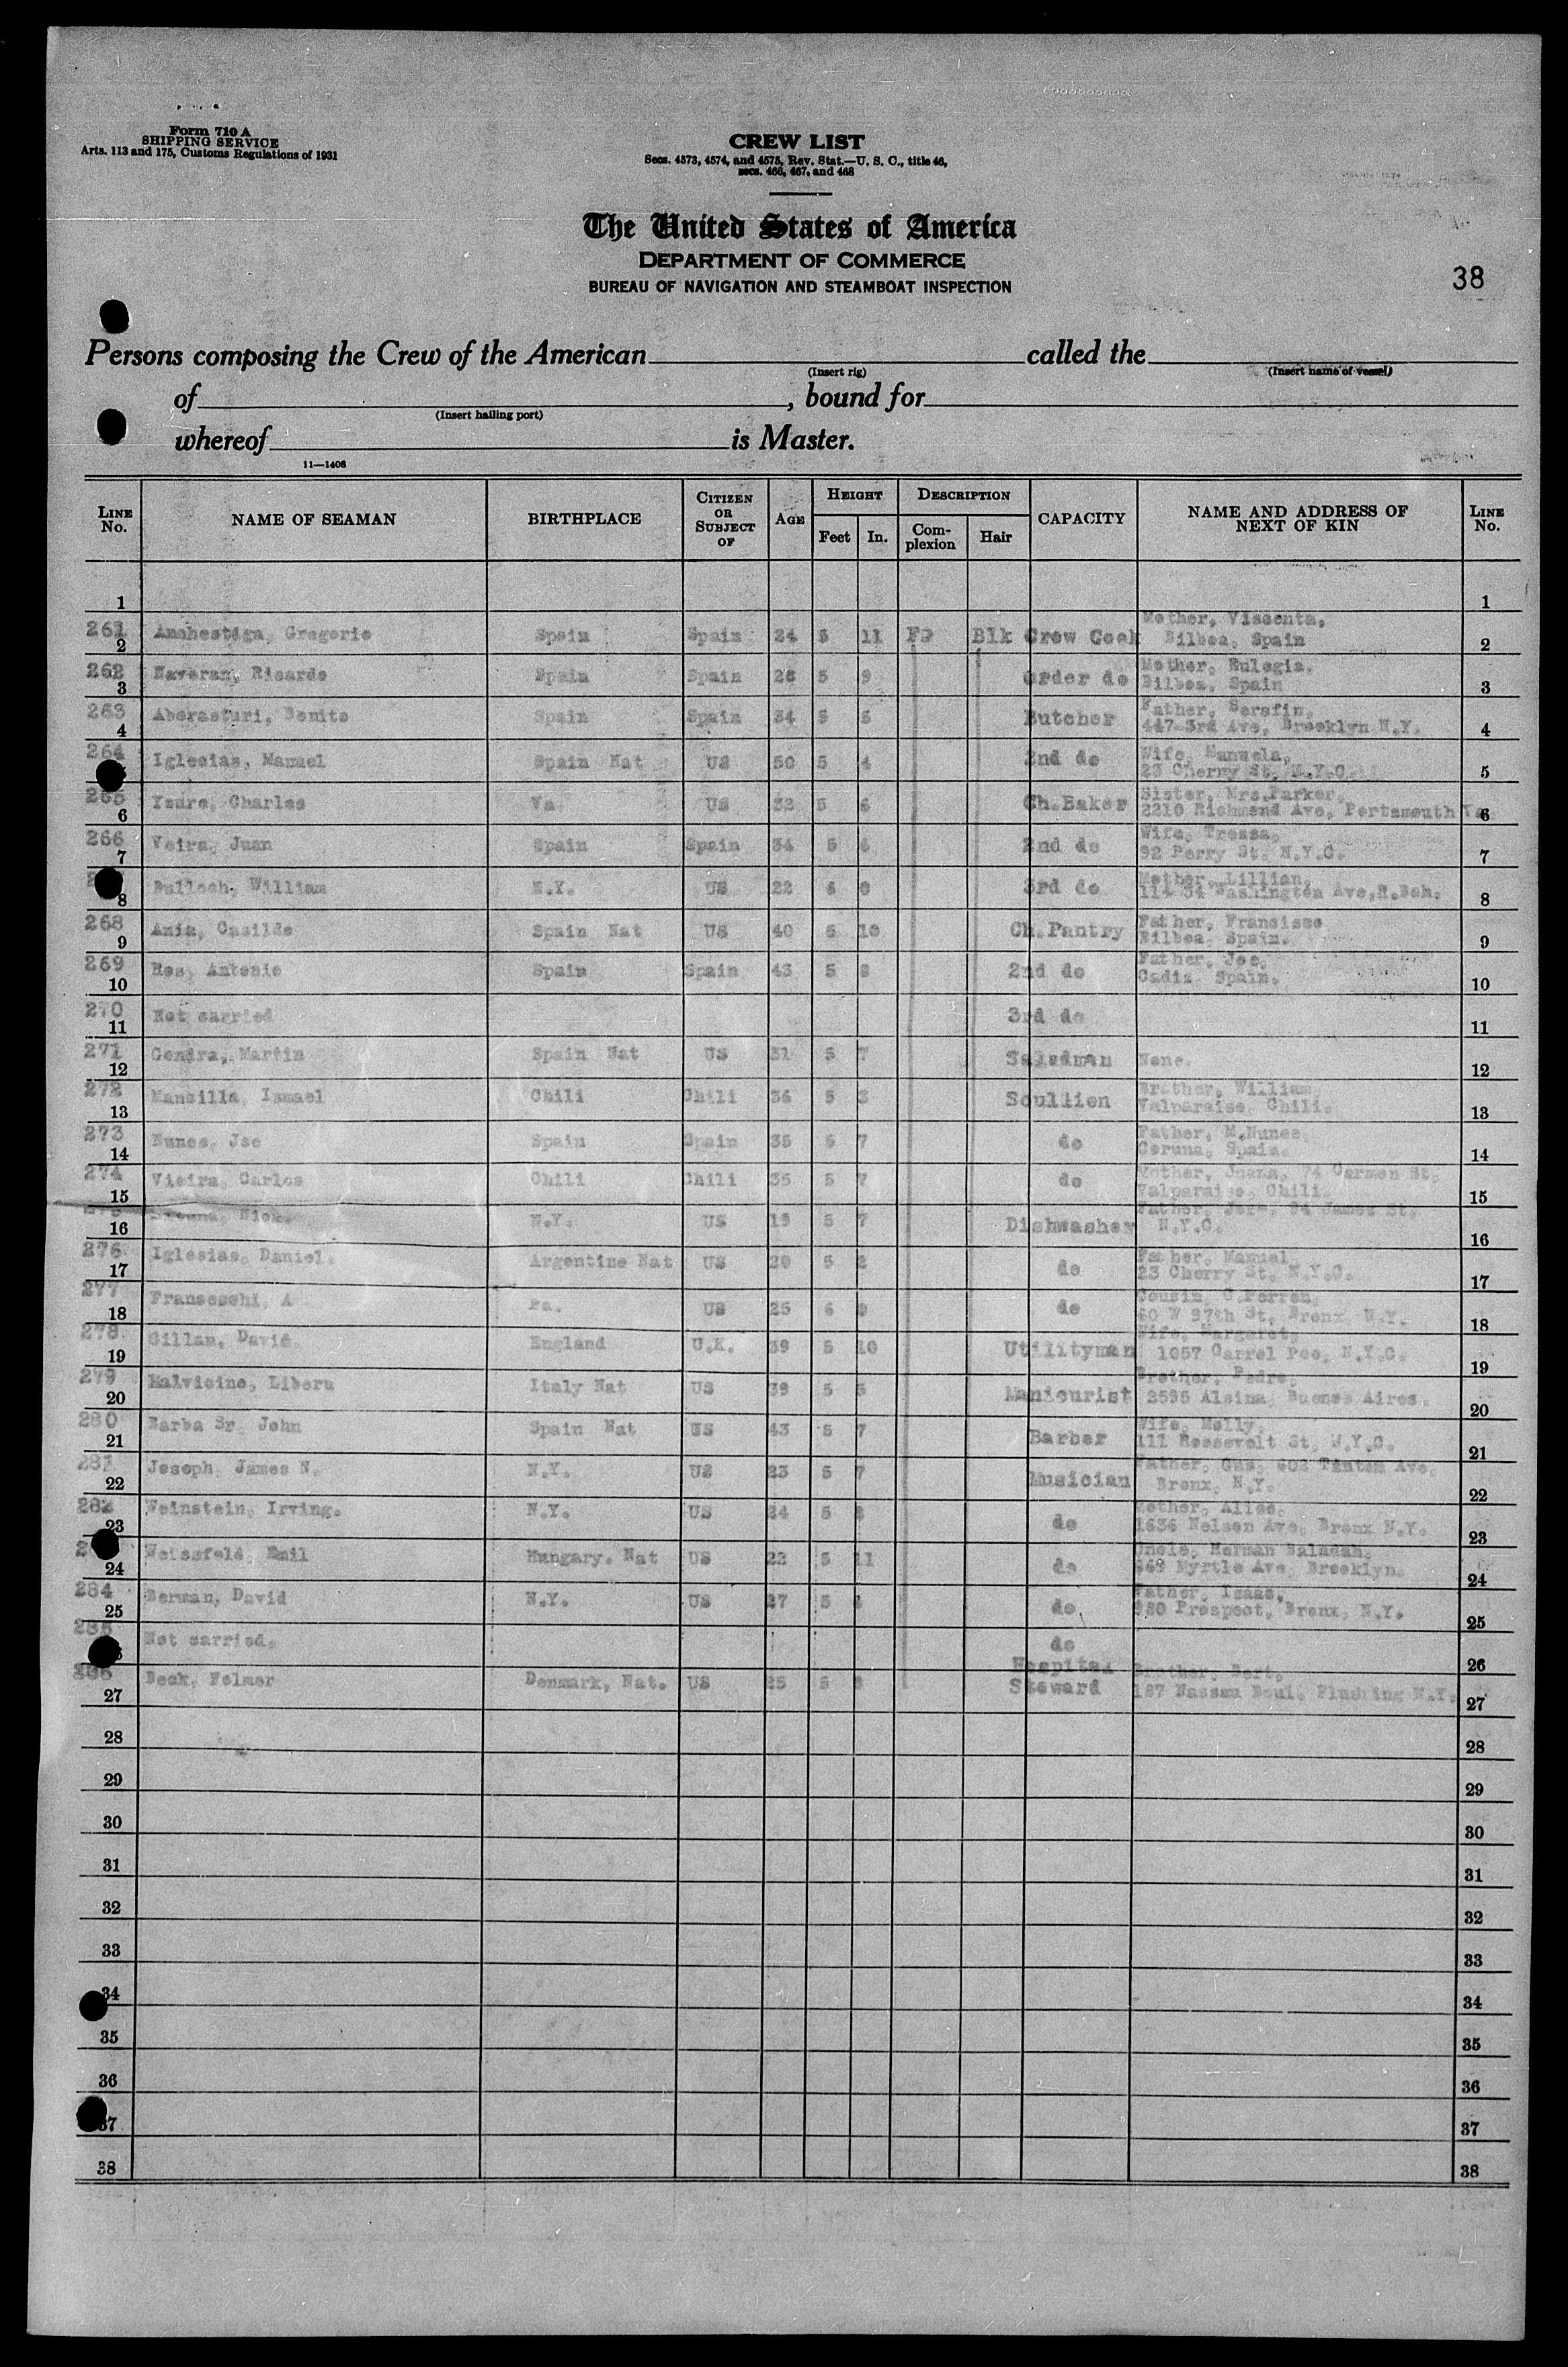 Form 710 A
SHIPPING SERVICE
Arts. 113 and 175, Customs Regulations of 1931
CREW LIST
Secs. 4573, 4574, and 4575, Rev. Stat.—U. S. C., title 46,
secs. 466, 467, and 468
The United States of America
DEPARTMENT OF COMMERCE
BUREAU OF NAVIGATION AND STEAMBOAT INSPECTION
38
Persons composing the Crew of the American called the
(Insert rig) (Insert name of vessel)
of , bound for
(Insert hailing port)
whereof is Master.
11—1408
LINE No. NAME OF SEAMAN BIRTHPLACE CITIZEN OR SUBJECT OF AGE HEIGHT Feet In. DESCRIPTION Complexion Hair CAPACITY NAME AND ADDRESS OF NEXT OF KIN LINE No.
1 1
261 2 Gregorio Spain Spain 24 5 11 Blk Crew Cook Mother, Bilboa, Spain 2
262 3 Navaran, Ricardo Spain Spain 28 5 9 Mother, Eulogia, Bilboa, Spain 3
263 4 Aberasturi, Benito Spain Spain 34 5 5 Butcher Father, Serafin, 447-3rd Ave, Brooklyn N.Y. 4
264 Iglesias, Manuel Spain Nat US 50 5 4 2nd do Wife, Manuela, 23 Cherry St, N.Y.C. 5
265 6 Charles Va. US 5 6 Ch.Baker Sister, Mrs.Parker, 2210 Richmond Ave, Portsmouth Va 6
266 7 Veira, Juan Spain Spain 34 5 2nd do Wife, Tressa, 92 Perry St. N.Y.C. 7
8 Bulloch, William N.Y. US 22 6 0 3rd do Mother, Lillian, Washington Ave, 8
268 9 Casildo Spain Nat US 40 5 10 Ch.Pantry Father, Francisco Bilboa, Spain. 9
269 10 Ros, Antonio Spain Spain 43 5 2nd do Father, Joe, Cadiz Spain. 10
270 11 Not carried 3rd do 11
271 12 Martin Spain Nat US 31 5 7 Saladman None. 12
272 13 Mansilla, Ismael Chili Chili 36 5 3 Scullion Brother, William Valparaiso, Chili. 13
273 14 Nunes, Joe Spain Spain 35 5 7 do Father, M.Nunes, Coruna, Spain. 14
274 15 Vieira, Carlos Chili Chili 35 5 7 do Mother, Juana, 74 Carmen St, Valparaiso, Chili. 15
16 Nick. N.Y. US 19 5 7 Dishwasher Father, James St, N.Y.C. 16
276 17 Iglesias, Daniel. Argentine Nat US 20 5 do Father, Manuel, 23 Cherry St, N.Y.C. 17
277 18 Franceschi, A Pa. US 25 do Cousin, 60 W 97th St, Bronx, N.Y. 18
278 19 Gillan, David. England U.K. 39 5 10 Utilityman Wife, Margaret, 1057 N.Y.C. 19
279 20 Libera Italy Nat US 39 5 5 Manicurist Brother, Pedro, 2595 Alsina, Buenos Aires. 20
280 21 Barba Sr. John Spain Nat US 43 5 7 Barber Wife, Molly, 111 Roosevelt St, N.Y.C. 21
281 22 Joseph, James N. N.Y. US 23 5 7 Musician Father, Gus, Ave, Bronx, N.Y. 22
282 23 Weinstein, Irving. N.Y. US 24 5 do Mother, Alice, 1636 Nelson Ave, Bronx N.Y. 23
24 Weissfeld, Emil Hungary. Nat US 22 5 11 do Uncle, Herman Myrtle Ave, Brooklyn. 24
284 25 Berman, David N.Y. US 27 5 do Father, Isaac, 980 Prospect, Bronx, N.Y. 25
285 Not carried. do 26
286 27 Beck, Folmer Denmark, Nat. US 25 5 Hospital Steward Brother, Bert, 187 Nassau Boul. Flushing N.Y. 27
28 28
29 29
30 30
31 31
32 32
33 33
34 34
35 35
36 36
37 37
38 38